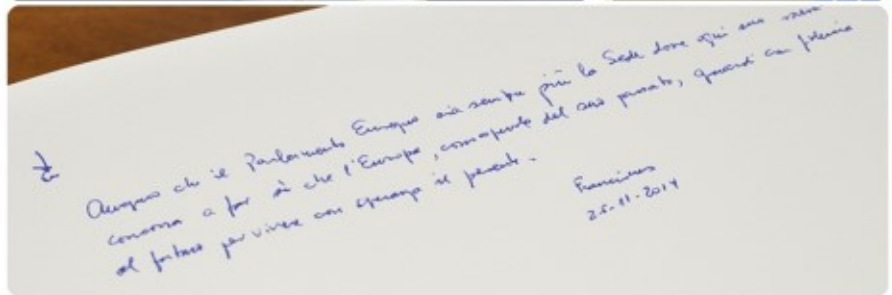 Auspico che il Parlamento Europeo sia sempre più la Sede dove ogni suo membro
concorra a far sì che l'Europa, consapevole del suo passato, guardi con fiducia
al futuro per vivere con speranza il presente.
Franciscus
25-11-2014